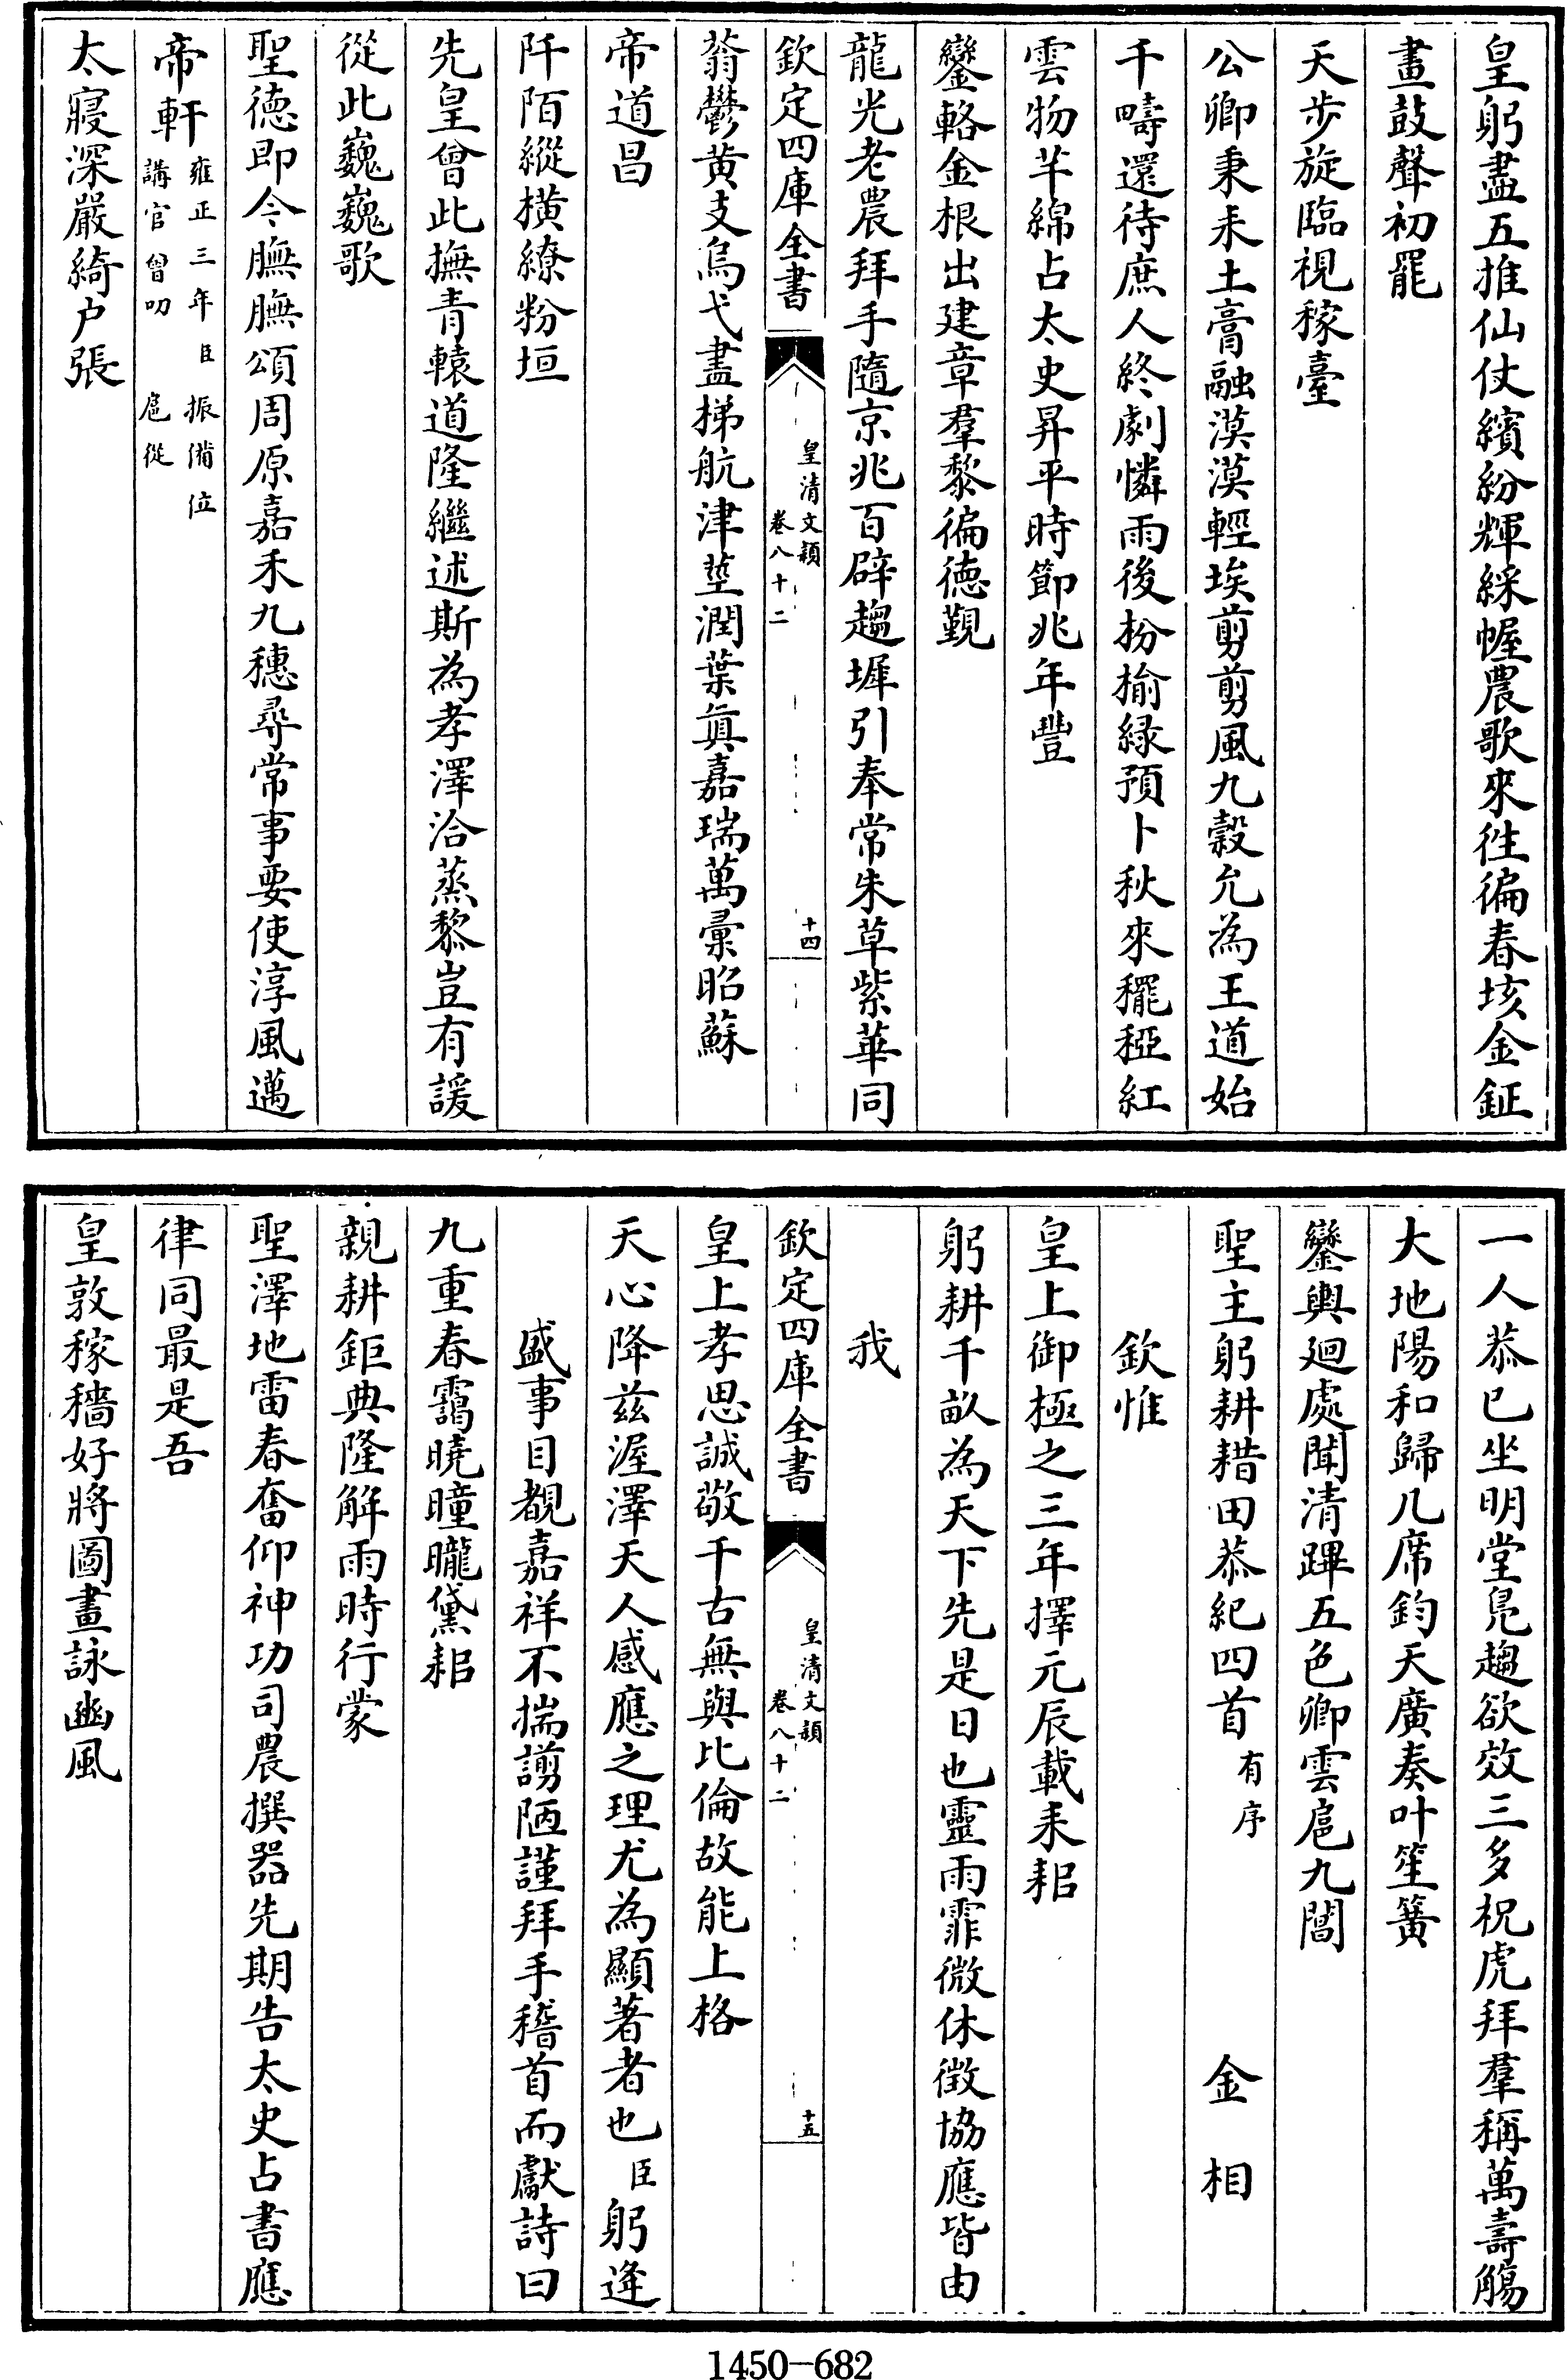 皇躬盡五推仙仗繽紛輝綵幄農歌來徃徧春垓金鉦
畫鼓聲初罷
天步旋臨視稼臺
公卿秉耒土膏融漠漠輕埃剪剪風九穀允為王道始
千疇還待庶人終劇憐雨後枌榆緑預卜秋來䆉稏紅
雲物芊綿占太史昇平時節兆年豐
鑾輅金根出建章羣黎徧徳覲
龍光老農拜手隨京兆百辟趨墀引奉常朱草紫華同
欽定四庫全書
皇清文穎
卷八十二
十四
蓊鬱黄支烏弋盡梯航津莖潤葉真嘉瑞萬彚昭蘇
帝道昌
阡陌縱横繚粉垣
先皇曾此撫青轅道隆繼述斯為孝澤洽蒸黎豈有諼
從此巍巍歌
聖徳即今膴膴頌周原嘉禾九穗尋常事要使淳風邁
帝軒雍正三年臣振備位
講官曾叨扈從
太寢深嚴綺户張
一人恭已坐明堂鳧趨欲效三多祝虎拜羣稱萬壽觴
大地陽和歸几席鈞天廣奏叶笙簧
鑾輿迴處聞清蹕五色卿雲扈九閶
聖主躬耕耤田恭紀四首有序 金相
欽惟
皇上御極之三年擇元辰載耒耜
躬耕千畝為天下先是日也靈雨霏微休徴協應皆由
我
欽定四庫全書
皇清文穎
卷八十二
十五
皇上孝思誠敬千古無與比倫故能上格
天心降兹渥澤天人感應之理尤為顯著者也臣躬逢
盛事目覩嘉祥不揣謭陋謹拜手稽首而獻詩曰
九重春靄曉曈曨黛耜
親耕鉅典隆解雨時行蒙
聖澤地雷春奮仰神功司農撰器先期告太史占書應
律同最是吾
皇敦稼穡好將圖畫詠豳風
1450-682